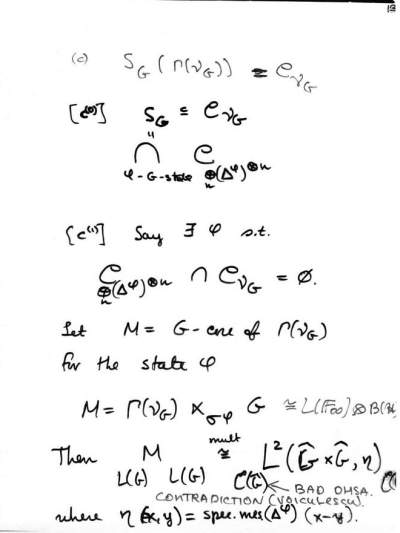 (c) S_G (Γ(ν_G)) = C_{ν_G}
[c^(0)] S_G ⊆ C_{ν_G}
"
⋂ C
φ-G-state ⊕_n (Δ^φ)^{⊗n}
[c^(1)] Say ∃ φ s.t.
C_{⊕_n (Δ^φ)^{⊗n}} ∩ C_{ν_G} = ∅.
Let M = G-core of Γ(ν_G)
for the state φ
M = Γ(ν_G) ⋊_{σφ} G ≅ L(F∞) ⊗ B(H)
mult
Then M ≅ L²(Ĝ × Ĝ, η)
L(G) L(G) L(G) ← BAD DMSA.
CONTRADICTION (VOICULESCU).
where η(x,y) = spec.mes(Δ^φ) (x-y).